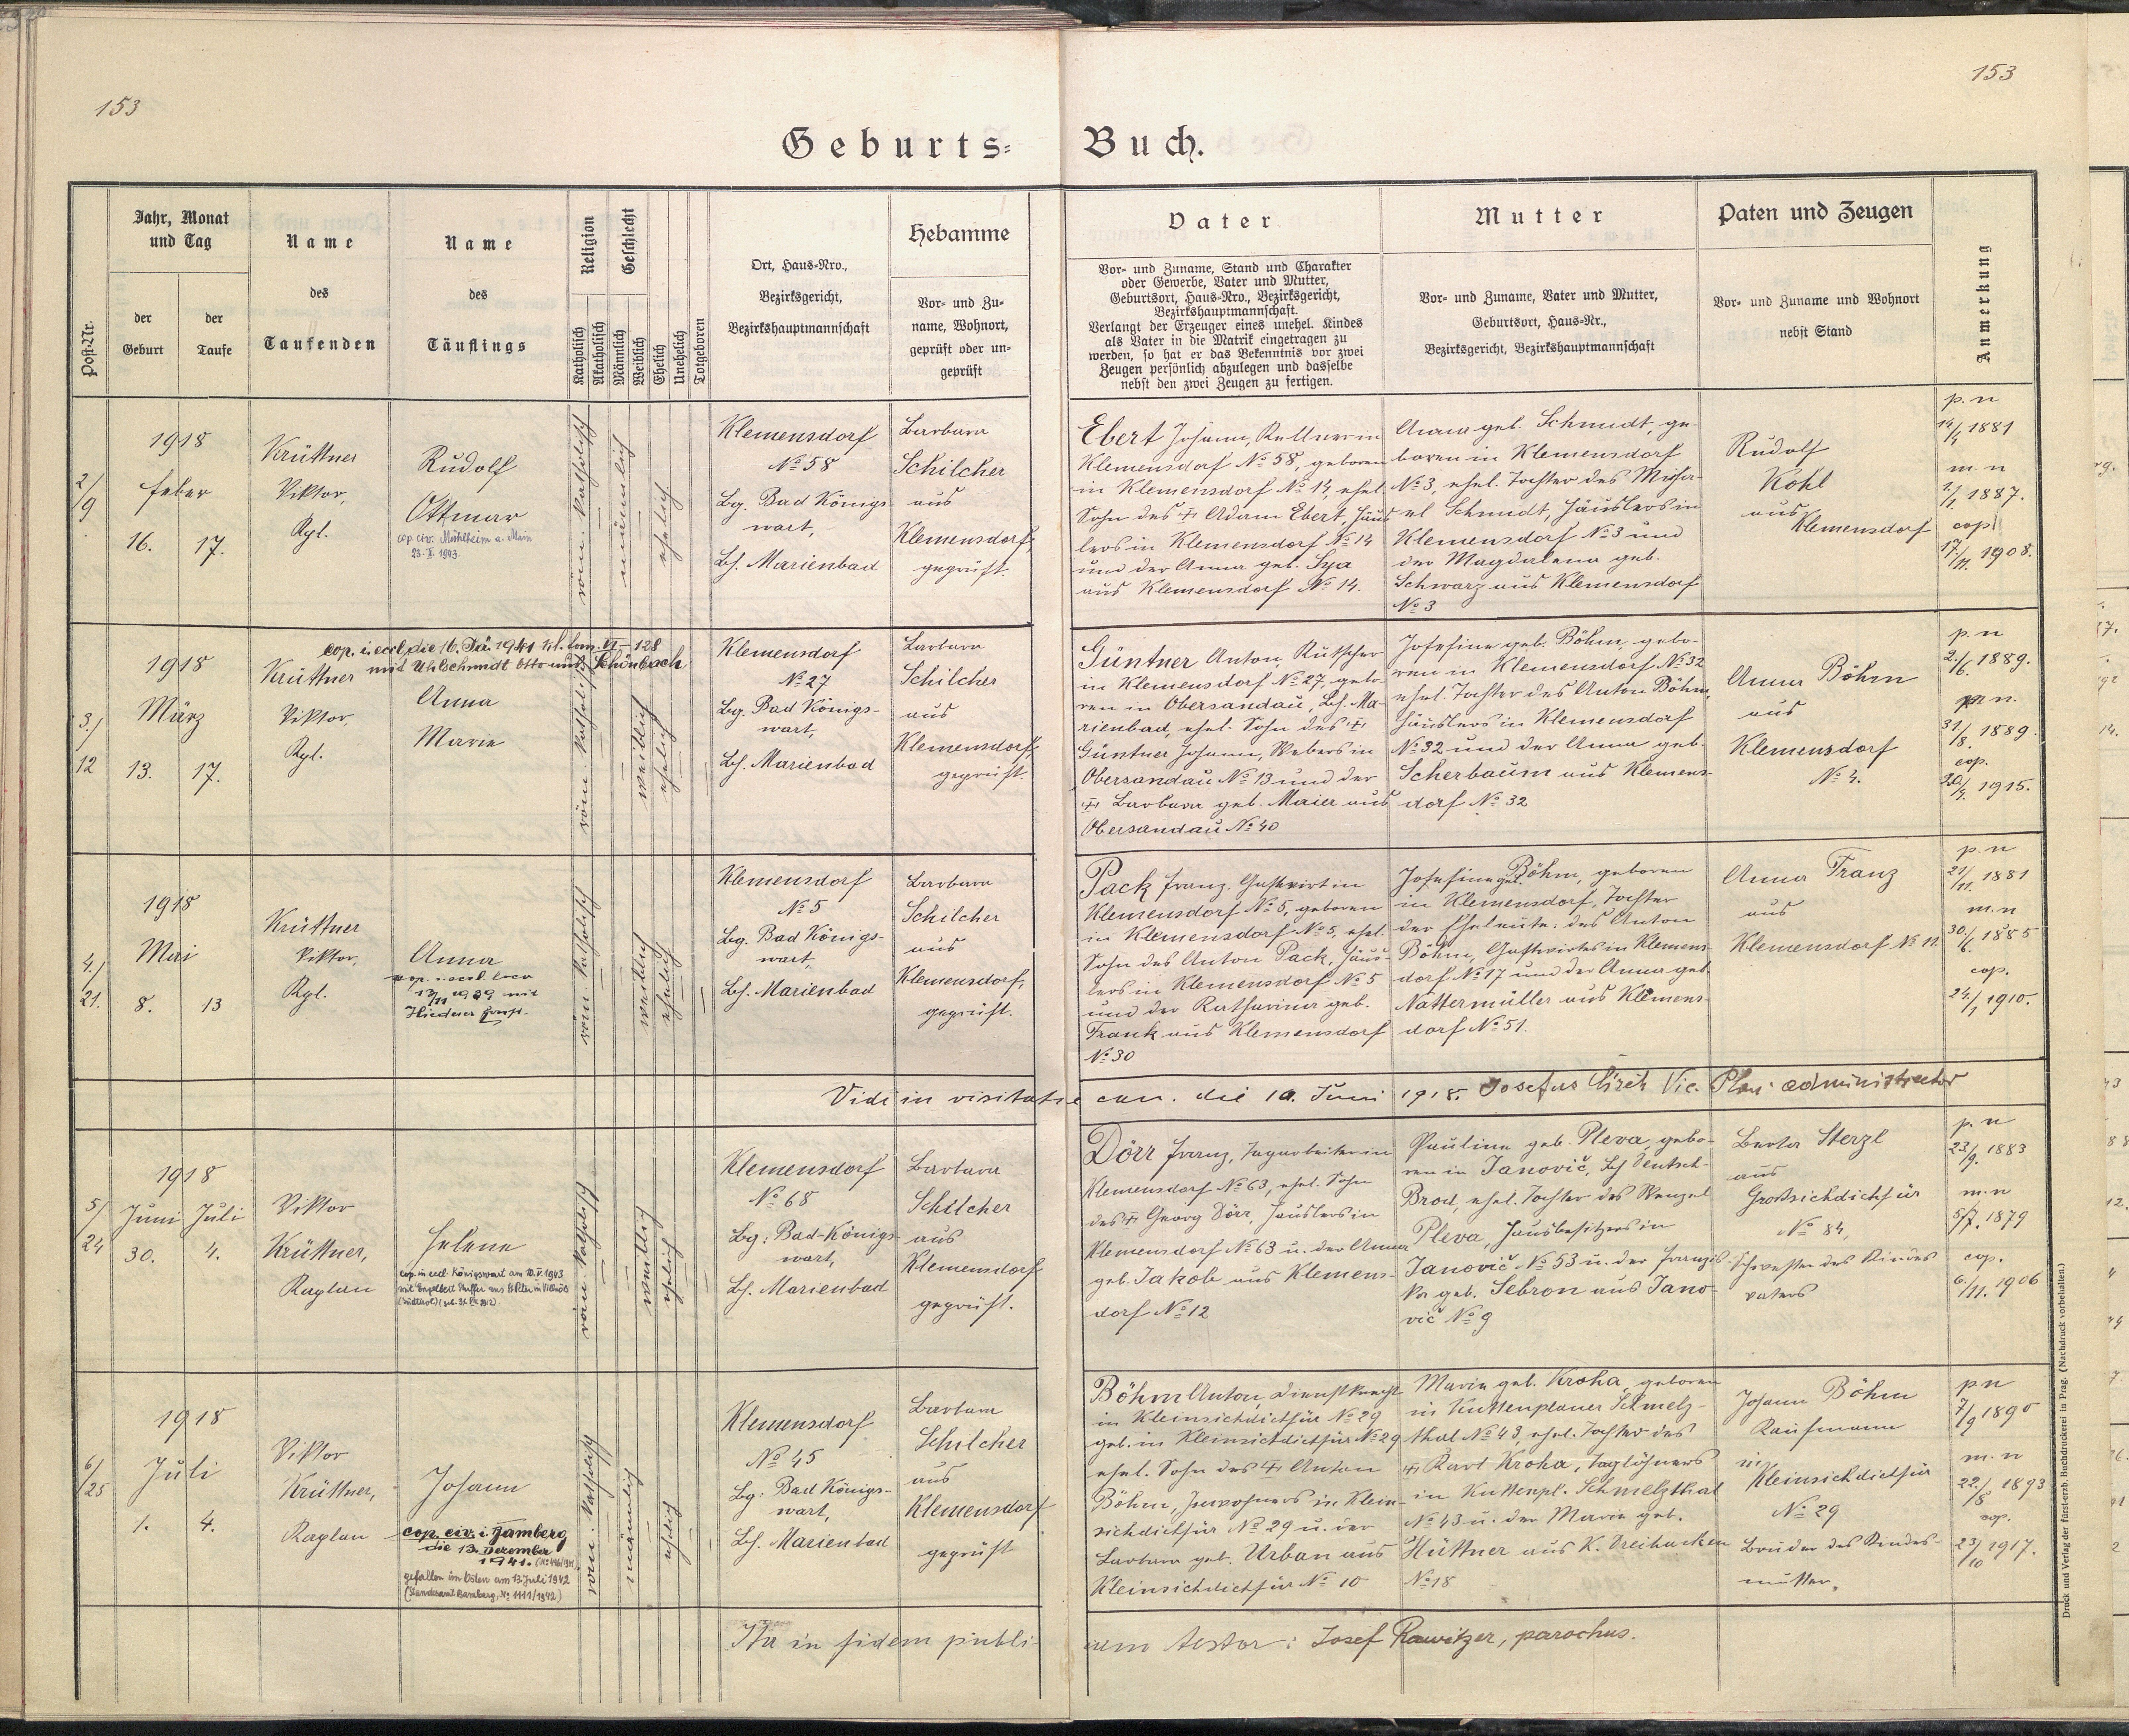 153
153
Geburts=
Buch.
Post-Nr.
Jahr, Monat
und Tag
der
Geburt
der
Taufe
Name
des
Taufenden
Name
des
Täuflings
Religion
Katholisch
Akatholisch
Geschlecht
Männlich
Weiblich
Ehelich
Unehelich
Totgeboren
Ort, Haus=Nro.,
Bezirksgericht,
Bezirkshauptmannschaft
Hebamme
Vor= und Zu=
name, Wohnort,
geprüft oder un=
geprüft
Vater
Vor= und Zuname, Stand und Charakter
oder Gewerbe, Vater und Mutter,
Geburtsort, Haus=Nro., Bezirksgericht,
Bezirkshauptmannschaft.
Verlangt der Erzeuger eines unehel. Kindes
als Vater in die Matrik eingetragen zu
werden, so hat er das Bekenntnis vor zwei
Zeugen persönlich abzulegen und dasselbe
nebst den zwei Zeugen zu fertigen.
Mutter
Vor= und Zuname, Vater und Mutter,
Geburtsort, Haus=Nr.,
Bezirksgericht, Bezirkshauptmannschaft
Paten und Zeugen
Vor= und Zuname und Wohnort
nebst Stand
Anmerkung
2/9
1918
Feber
16. 17.
Krüttner
Viktor,
Kpl.
Rudolf
Ottmar
cop. civ. Mühlheim a. Main
23. I. 1943.
röm. katholisch
männlich
ehelich
Klemensdorf
No 58
Bg. Bad Königs-
wart,
Bh. Marienbad
Barbara
Schilcher
aus
Klemensdorf,
geprüft.
Ebert Johann, Kellner in
Klemensdorf No 58, geboren
in Klemensdorf No 14, ehel.
Sohn des Adam Ebert, Häus
lers in Klemensdorf No 14
und der Anna geb.
aus Klemensdorf No 14.
Anna geb. Schmidt, ge-
boren in Klemensdorf
No 3, ehel. Tochter des Micha-
el Schmidt, Häuslers in
Klemensdorf No 3 und
der Magdalena geb.
Schwarz aus Klemensdorf
No 3
Rudolf
Kohl
aus
Klemensdorf
p. n
14/4 1881
m. n
1/1 1887.
cop
17/11. 1908.
3./12
1918
März
13. 17.
Krüttner
Viktor,
Kpl.
cop. i. eccl. die 16. 1941
mit Uhl Schmidt Otto aus Schönbach
Anna
Marie
röm. katholisch
weiblich
ehelich
Klemensdorf
No 27
Bg. Bad Königs-
wart,
Bh. Marienbad
Barbara
Schilcher
aus
Klemensdorf,
geprüft.
Güntner Anton, Kutscher
in Klemensdorf No 27, gebo-
ren in Obersandau, Bh. Ma-
rienbad, ehel. Sohn des
Güntner Johann, Webers in
Obersandau No 13 und der
Barbara geb. Maier aus
Obersandau No 40
Josefine geb. Böhm, gebo-
ren in Klemensdorf No 32
ehel. Tochter des Anton Böhm,
Häuslers in Klemensdorf
No 32 und der Anna geb.
Scherbaum aus Klemens-
dorf No 32
Anna Böhm
aus
Klemensdorf
No 4.
p. n
2./6. 1889.
m. n.
31/8. 1889.
cop.
20/4. 1915.
4./21.
1918
Mai
8. 13
Krüttner
Viktor,
Kpl.
Anna
cop. i. eccl. loco
13/11 1939 mit
röm. katholisch
weiblich
ehelich
Klemensdorf
No 5
Bg. Bad Königs-
wart,
Bh. Marienbad
Barbara
Schilcher
aus
Klemensdorf,
geprüft.
Pack Franz, Gastwirt in
Klemensdorf No 5, geboren
in Klemensdorf No 5, ehel.
Sohn des Anton Pack, Häus-
lers in Klemensdorf No 5
und der Katharina geb.
Frank aus Klemensdorf
No 30
Josefine geb. Böhm, geboren
in Klemensdorf, Tochter
der Eheleute: des Anton
Böhm, Gastwirtes in Klemens-
dorf No 17 und der Anna geb.
Nattermüller aus Klemens-
dorf No 51.
Anna Franz
aus
Klemensdorf No 11.
p. n
21/11. 1881
m. n
30./6. 1885
cop.
24./1 1910.
Vidi in visitatione can. die 10. Juni 1918. Josefus Vic. administrator
5/24
1918
Juni Juli
30. 4.
Viktor
Krüttner,
Kaplan
Helene
cop. in eccl. Königswart am 20. V. 1943
röm. katholisch
weiblich
ehelich
Klemensdorf
No 68
Bg: Bad-Königs-
wart,
Bh. Marienbad
Barbara
Schilcher
aus
Klemensdorf
geprüft.
Dörr Franz, Tagarbeiter in
Klemensdorf No 63, ehel. Sohn
des Georg Dörr, Häuslers in
Klemensdorf No 63 u. der Anna
geb. Jakob aus Klemens-
dorf No 12
Pauline geb. Pleva, gebo-
ren in Janovič, Bh Deutsch-
Brod, ehel. Tochter des Wenzel
Pleva, Hausbesitzers in
Janovič No 53 u. der Franzis-
ka geb. Sebron aus Jano-
vič No 9
Berta Sterzl
aus
Großsichdichfür
No 84,
Schwester des Kindes
vaters
p. n
23/9. 1883
m. n
5/7. 1879
cop.
6./11. 1906
6/25
1918
Juli
1. 4.
Viktor
Krüttner,
Kaplan
Johann
cop. civ. i. Bamberg
die 13. Dezember
1941.
gefallen im Osten am 13 Juli 1942
(Standesamt Bamberg, No 1111/1942)
röm. katholisch
männlich
ehelich
Klemensdorf
No 45
Bg: Bad Königs-
wart,
Bh. Marienbad
Barbara
Schilcher
aus
Klemensdorf
geprüft
Böhm Anton, Dienstknecht
in Kleinsichdichfür No 29
geb. in Kleinsichdichfür No 29
ehel. Sohn des Anton
Böhm, Inwohners in Klein-
sichdichfür No 29 u. der
Barbara geb. Urban aus
Kleinsichdichfür No 10
Marie geb. Kroha, geboren
in Kuttenplaner Schmelz-
thal No 43, ehel. Tochter des
Karl Kroha, Taglöhners
in Kuttenpl. Schmelzthal
No 43 u. der Marie geb.
Hüttner aus K. Dreihacken
No 18
Johann Böhm
Kaufmann
in
Kleinsichdichfür
No 29
Bruder des Kindes-
mutter.
p n
7/9 1890
m. n
22./8 1893
cop.
23/10 1917.
Ita in fidem publicam testor: Josef Rawitzer, parochus.
Druck und Verlag der fürst-erzb. Buchdruckerei in Prag. (Nachdruck vorbehalten.)